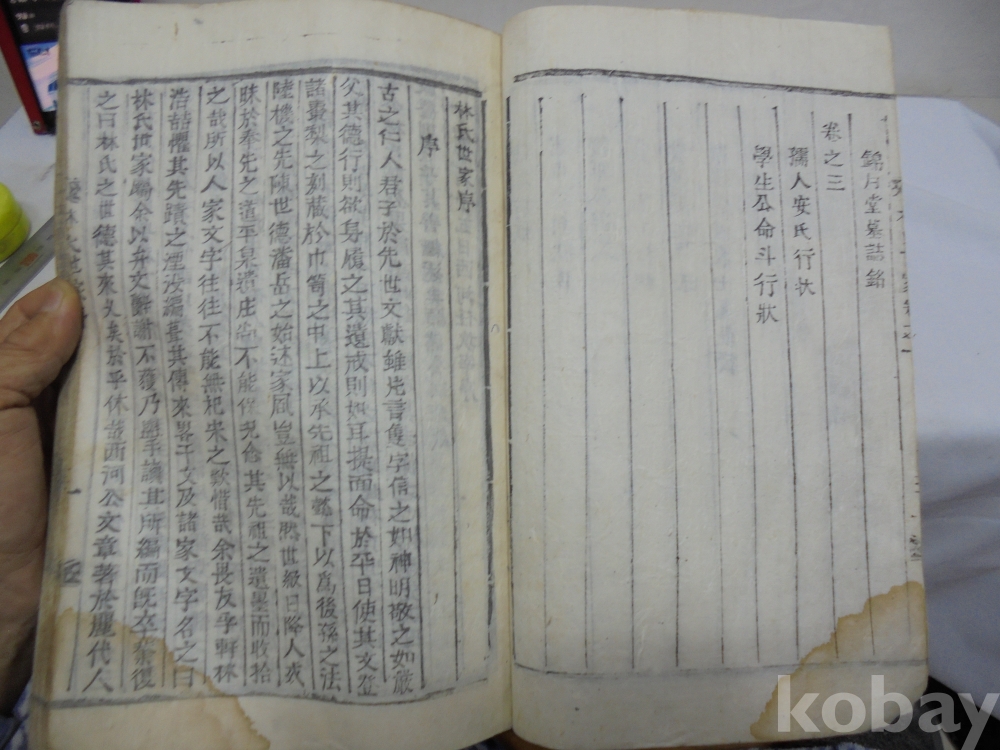 錦片堂墓誌銘
卷之三
孺人安氏行狀
學生公命斗行狀
林氏世家序
序
古之仁人君子於先世文獻雖片言隻字信之如神明敬之如嚴
父其德行則欲身履之其遺戒則如耳提而命於平日使其文登
諸棗梨之刻藏於巾笥之中上以承先祖之懿下以爲後孫之法
陸機之先陳世德潘岳之始述家風豈無以哉然世級日降人或
昧於奉先之道平泉遺庄尙不能保况 其先祖之遺墨而收拾
之哉所以人家文字往往不能無杞宋之歎惜哉余畏友 軒林
浩喆懼其先蹟之湮沒編 其傳來畧干文及諸家文字名之曰
林氏世家屬余以弁文辭謝不獲乃 手讀其所編而旣卒業復
之曰林氏之世德其來久矣於乎休哉西河公文章著於麗代人
一
kobay